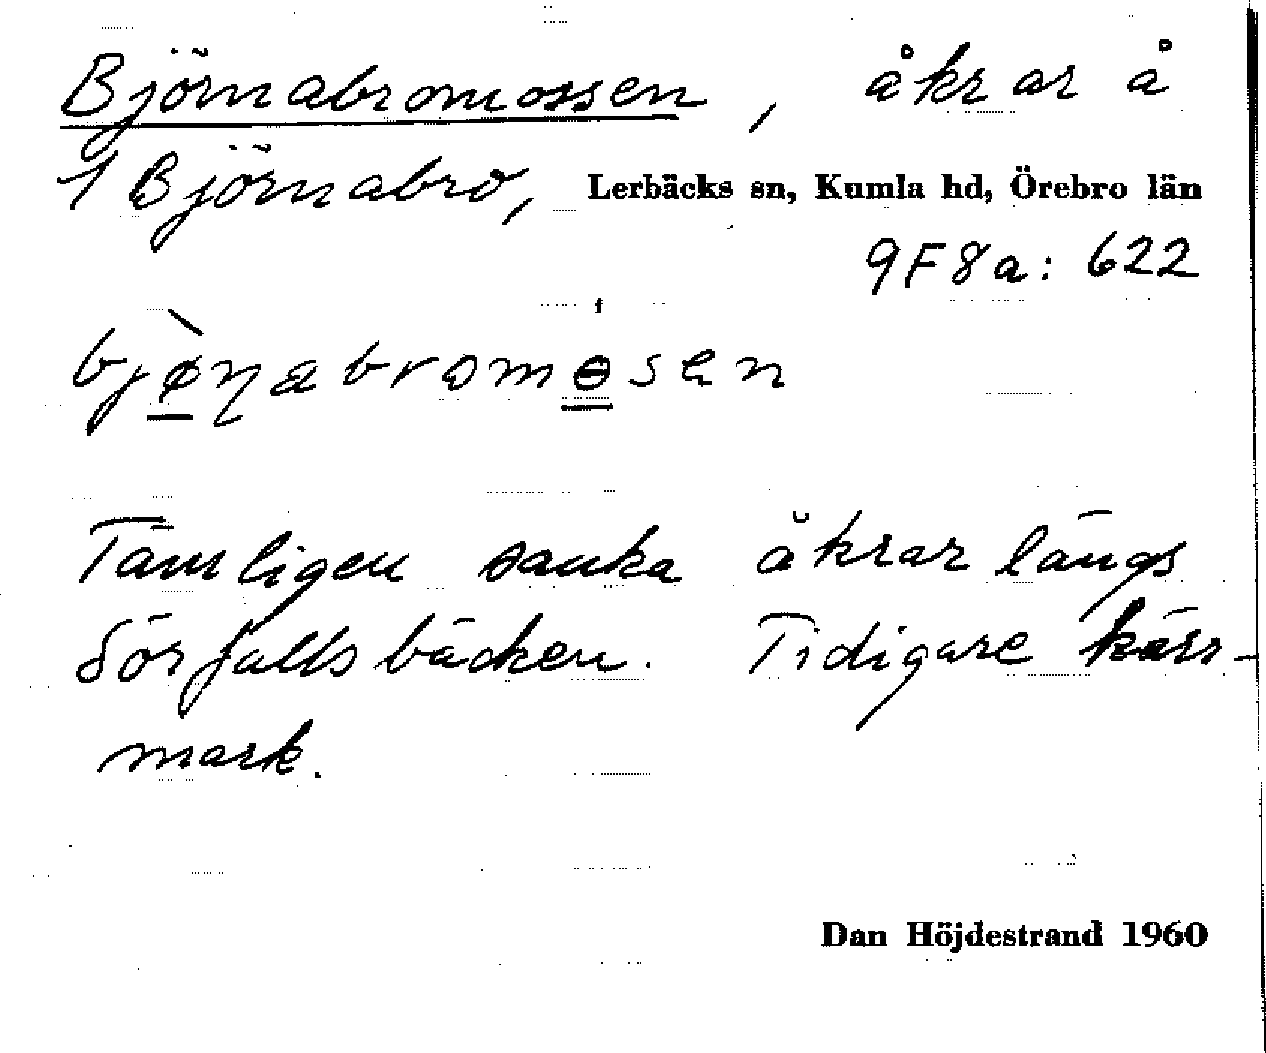 Björnabromossen, åkrar å
1 Björnabro, Lerbäcks sn, Kumla hd, Örebro län
9F8a: 622
bjø̀ɳabromɵsen
Tämligen sanka åkrar längs
Sörfallsbäcken. Tidigare kärr-
mark.
Dan Höjdestrand 1960